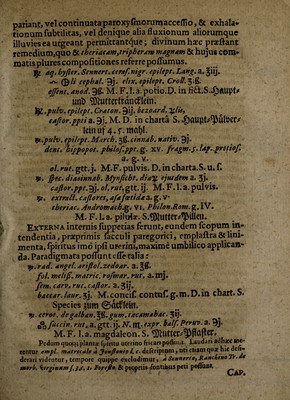 pariant, vel continuata paroxysmorum accessio, & exhala-
tionum subtilitas, vel denique alia fluxionum aliorumque
illuvies ea urgeant permittantque; divinum hæc præstant
remedium, quo & theriacam, tripheram magnam & hujus com-
matis plures compositiones referre possumus.
℞ aq. hyster. Sennert. ceras. nigr. epilept. Lang. a. ʒiij.
Oli cephal. ℈j. elix. epilept. Croll. ʒß.
essent. anod. ℈ß. M. F. l. a. potio D. in fict. S. Haupt-
und Mutterträncklein.
℞. pulv. epilept. Craton. ʒij. bezoard. ℈ii,
castor. ppti a. ℈j. M. D. in charta S. Haupt-Pülver-
lein iij 4. 5. mahl.
℞. pulv. epilept. March. ʒß. cinnab. nativ. ℈j.
dent. hippopot. philos. ppt. g. xv. fragm. 5. lap. pretios.
a. g. v.
ol. rut. gtt. j. M.F. pulvis. D. in charta S. u. s.
℞ spec. diacinnab. Mynsicht. diaz ejusdem a. ʒj.
castor. ppt. ℈j. ol. rut. gtt. ij. M. F. l. a. pulvis.
℞ extract. castorei, asafœtidæ a. g. v.
theriac. Andromach. g. vi. Philon. Rom. g. IV.
M. F. l. a. pilulæ. S. Mutter-Pillen.
EXTERNA internis suppetias ferunt, eundem scopum in-
tendentia, præprimis sacculi paregorici, emplastra & lini-
menta, spiritus imò ipsi uterini, maximè umbilico applican-
da. Paradigmata possunt esse talia:
℞ rad. angel. aristol. zedoar. a. ʒß.
fol. meliss. matric. rosmar. rut. a. mj.
sem. carv. rut. castor. a. ʒj.
baccar. laur. ʒj. M. concis. contus. g. m. D. in chart. S.
Species zum Säcklein.
℞ cerot. de galban. ℥ß. gum. tacamahac. ʒij.
Oli succin. rut. a. gtt. ij. N. m. expr. balf. Peruv. a. ℈j.
M. F. l. a. magdaleon. S. Mutter-Pflaster.
Pedum quoque plantæ spiritu uterino fricari possunt. Laudari adhuc me-
rentur empl. matricale à Jonstono l. c. descriptum, uti etiam quæ his desi-
derari videntur, tempore quippe excluduntur, à Sennerto, Ranchino Tr. de
morb. virginum s. 33. 2. Foresto & propriis fontibus peti possunt.
CAP.